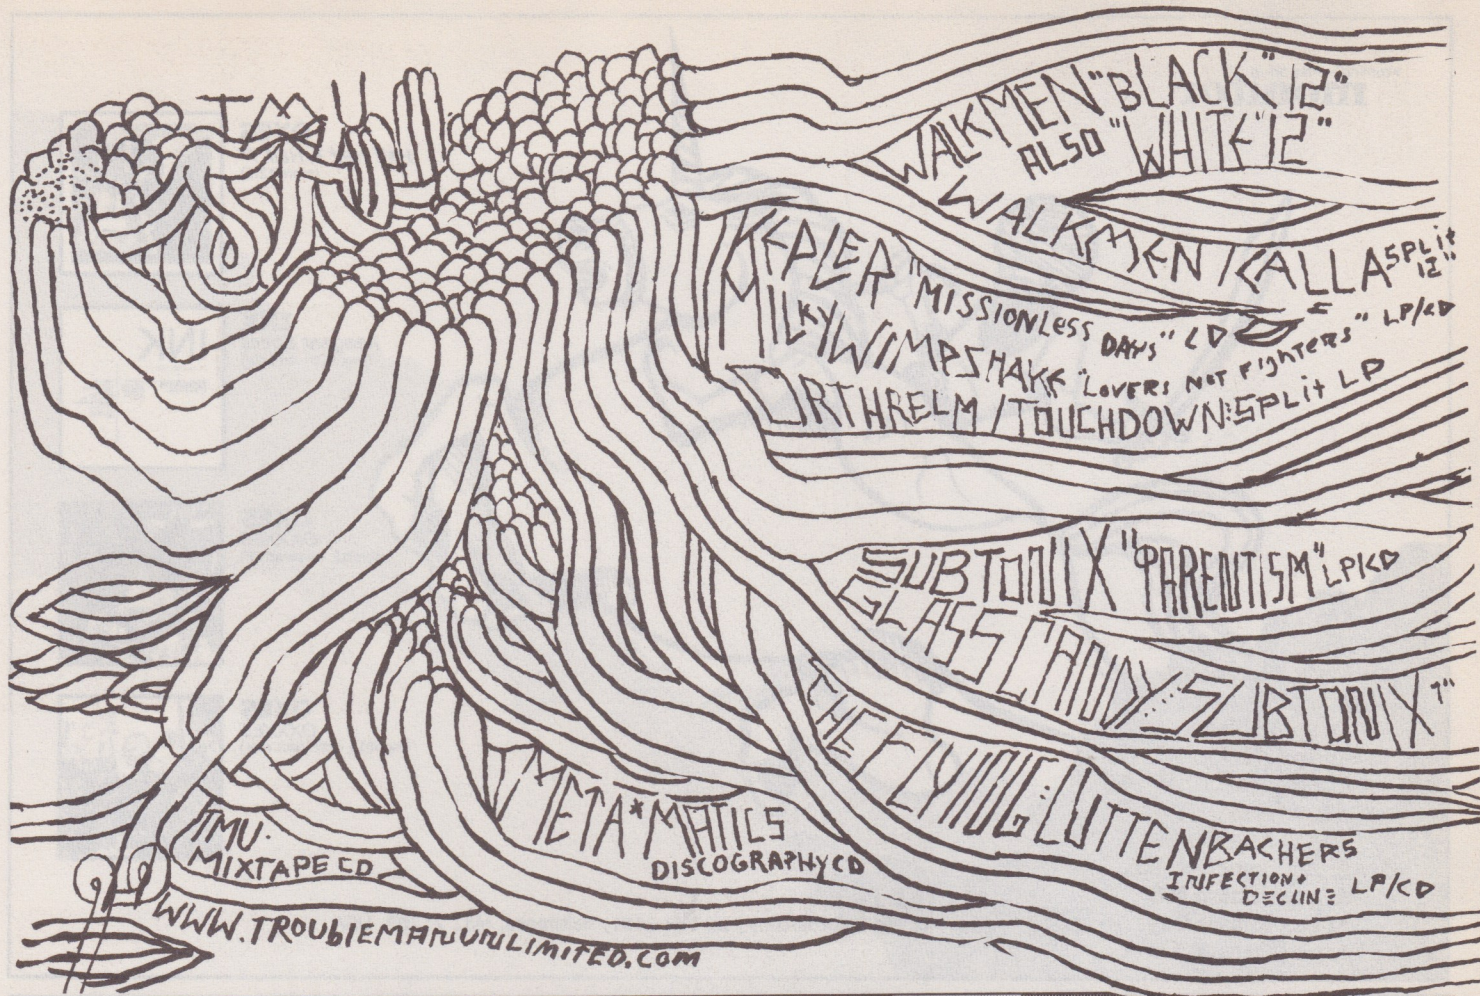 TMU
WALKMEN "BLACK" 12"
ALSO "WHITE" 12"
WALKMEN/KALLA SPLIT 12"
KEPLER "MISSIONLESS DAYS" CD
MILKY WIMPSHAKE "LOVERS NOT FIGHTERS" LP/CD
ORTHRELM/TOUCHDOWN:SPLIT LP
SUBTONIX "TARENTISM" LP/CD
GLASS CANDY:SUBTONIX 7"
THE FLYING:LUTTENBACHERS
INFECTION+
DECLINE LP/CD
META*MATICS
DISCOGRAPHY CD
TMU.
MIXTAPE CD
WWW.TROUBLEMANUNLIMITED.COM